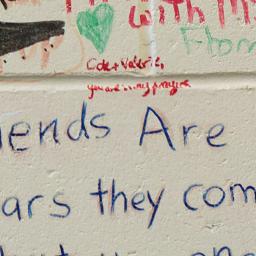 with
From
Cole + Valerie,
you are in my prayers
ends Are
ars they com